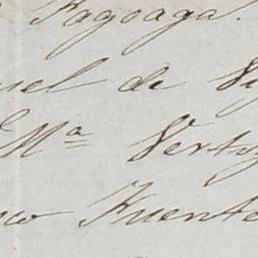 Fagoaga.
uel de
Mª Verty
co Fuente